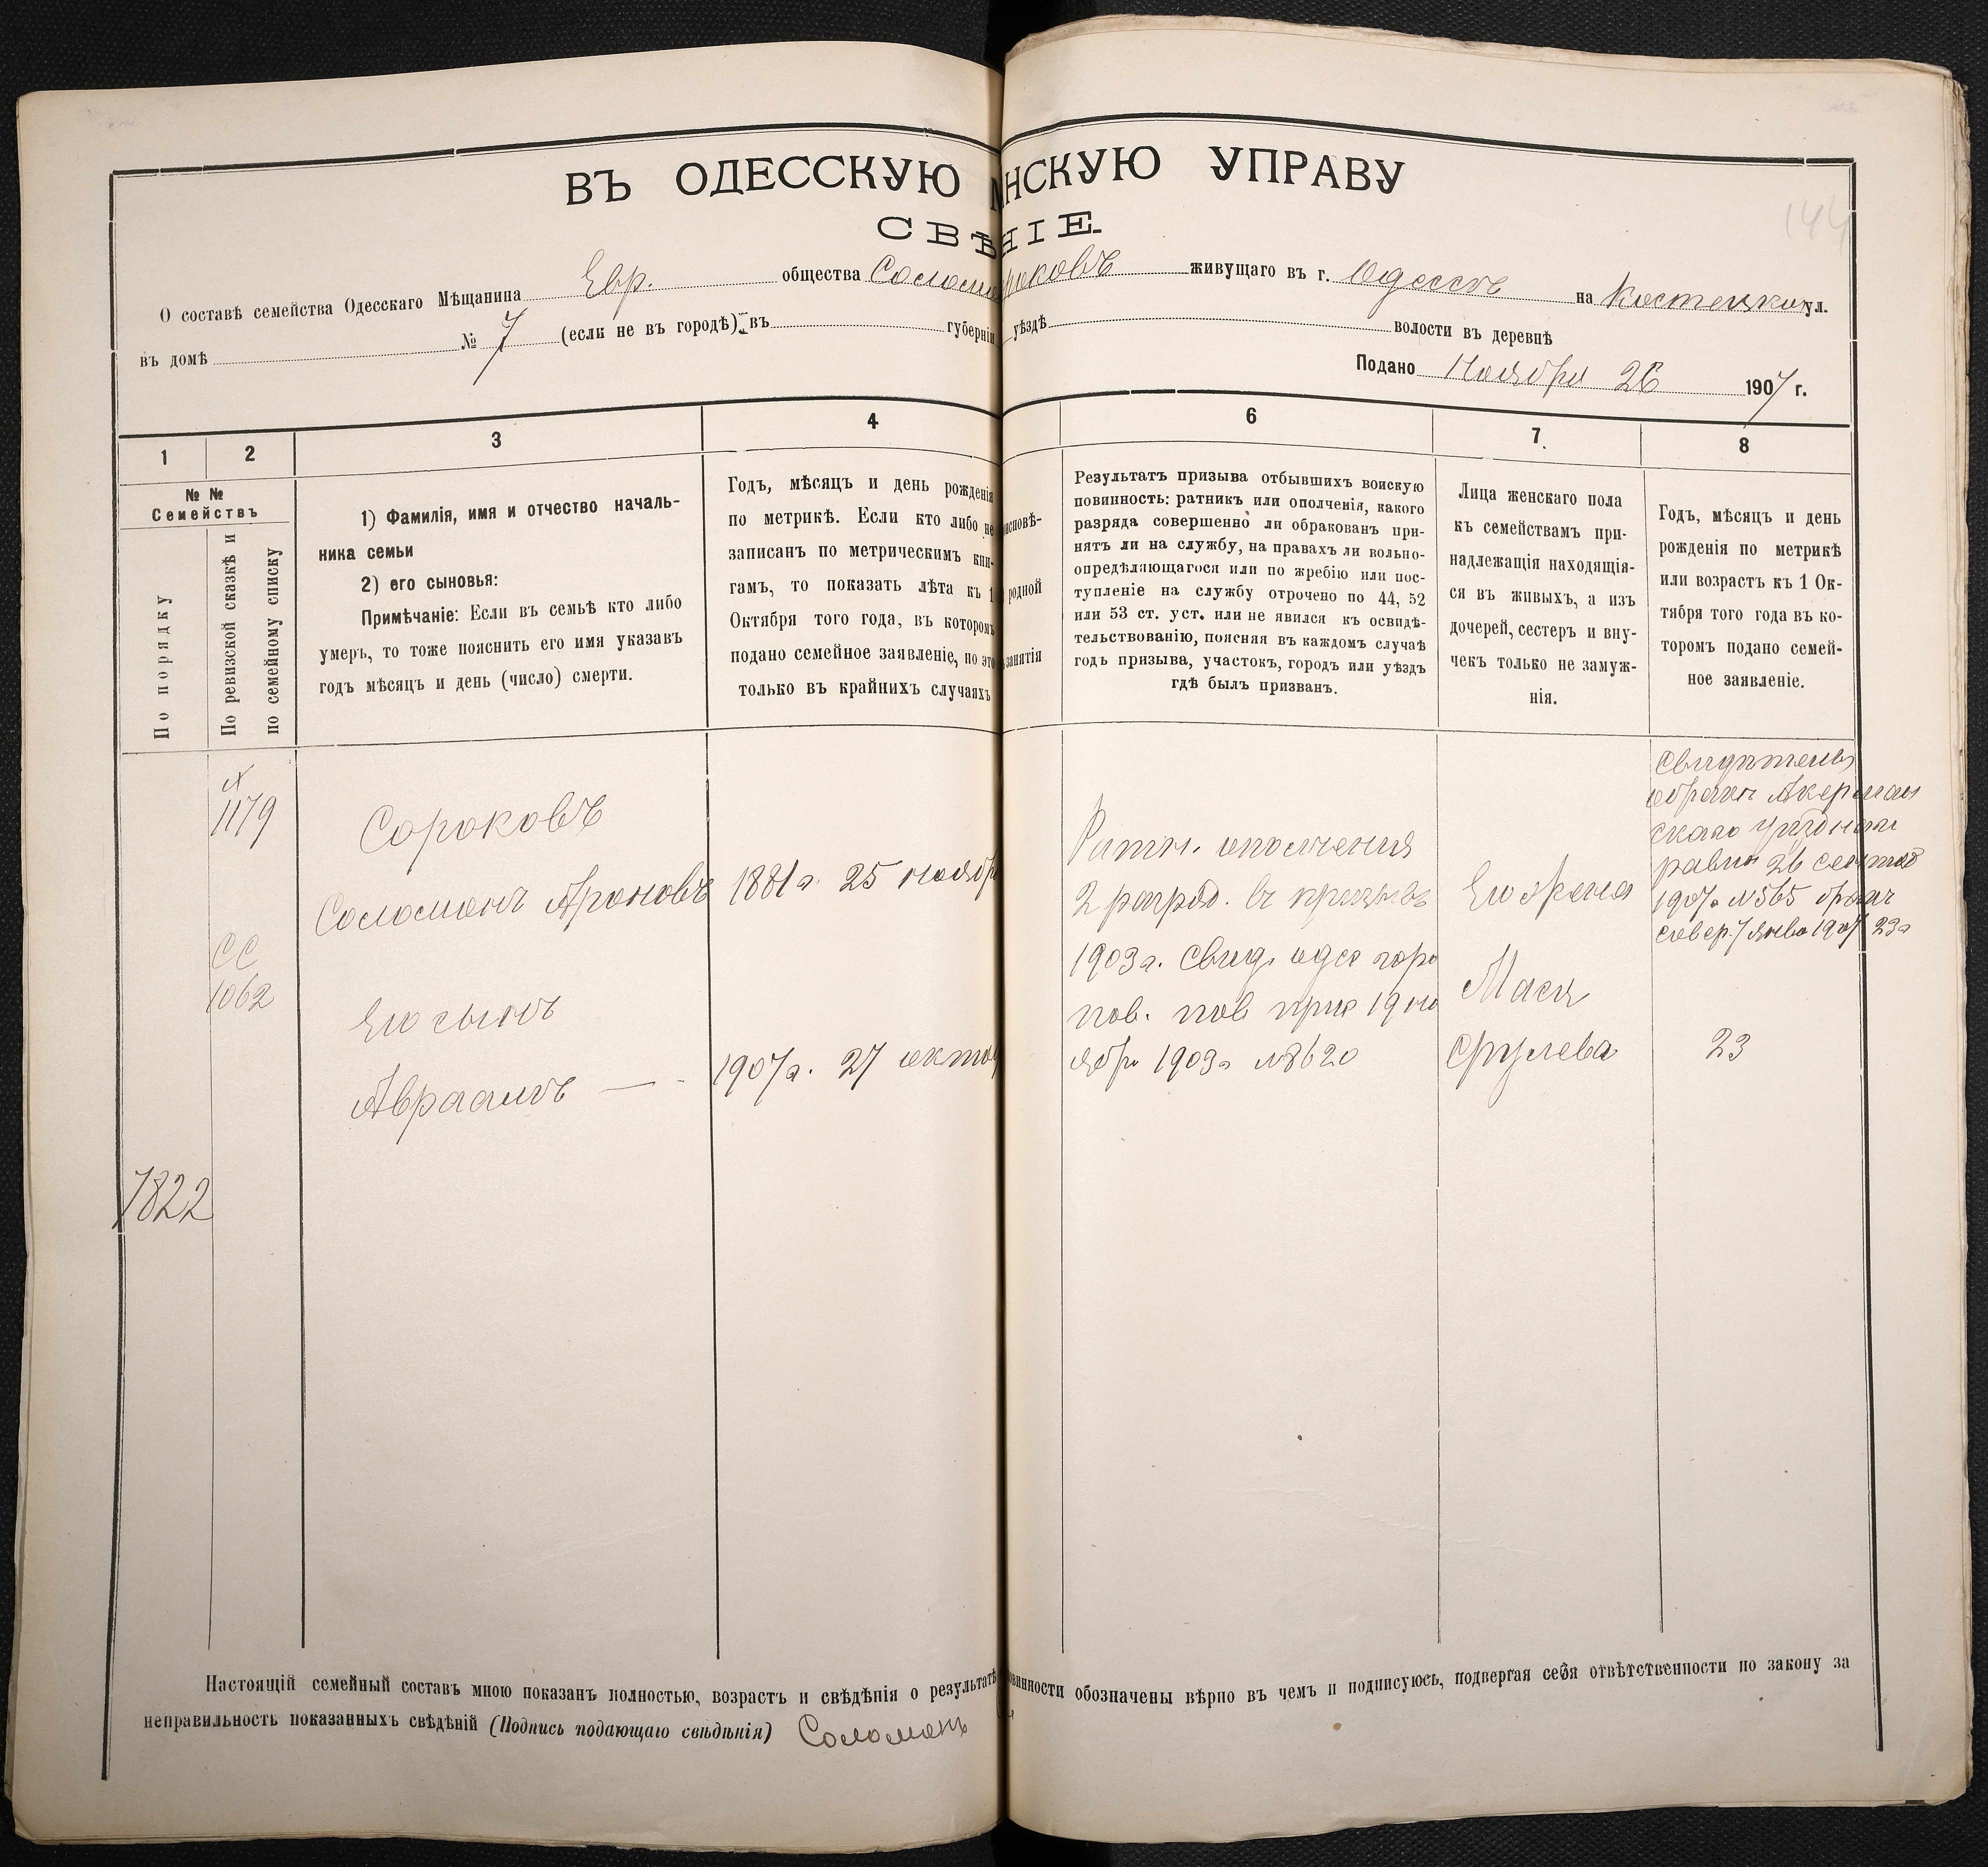 ВЪ ОДЕССКУЮ НСКУЮ УПРАВУ
СВѢНІЕ.
144
О составѣ семейства Одесскаго Мѣщанина Евр. общества Соломо роковъ живущаго въ г. Одессѣ на Костецкой ул.
въ домѣ № 7 (если не въ городѣ) въ губерніи уѣздѣ волости въ деревнѣ
Подано Ноября 26 1907 г.
1 2 3 4 6 7. 8
№ №
Семействъ
По порядку
По ревизской сказкѣ и
по семейному списку
1) Фамилія, имя и отчество началь-
ника семьи
2) его сыновья:
Примѣчаніе: Если въ семьѣ кто либо
умеръ, то тоже пояснить его имя указавъ
годъ мѣсяцъ и день (число) смерти.
Годъ, мѣсяцъ и день рожденія
по метрикѣ. Если кто либо не
записанъ по метрическимъ кни-
гамъ, то показать лѣта къ 1
Октября того года, въ которомъ
подано семейное заявленіе, но это
только въ крайнихъ случаяхъ
исповѣ-
родной
занятія
Результатъ призыва отбывшихъ воискую
повинность: ратникъ или ополченія, какого
разряда совершенно ли обракованъ при-
нятъ ли на службу, на правахъ ли вольно-
опредѣляющагося или по жребію или пос-
тупленіе на службу отрочено по 44, 52
или 53 ст. уст. или не явился къ освидѣ-
тельствованію, поясняя въ каждомъ случаѣ
годъ призыва, участокъ, городъ или уѣздъ
гдѣ былъ призванъ.
Лица женскаго пола
къ семействамъ при-
надлежащія находящія-
ся въ живыхъ, а изъ
дочерей, сестеръ и вну-
чекъ только не замуж-
нія.
Годъ, мѣсяцъ и день
рожденія по метрикѣ
или возрастъ къ 1 Ок-
тября того года въ ко-
торомъ подано семей-
ное заявленіе.
1179
Сороковъ
Соломонъ Ароновъ
1881 г. 25 ноябр
СС
1062
Его сынъ
Авраамъ —
1907 г. 27 октяб
7822
Ратн. ополченія
2 разряд. въ призывъ
1903 г. Свид. одес горо
пов. прис 19 но
ябр 1903 г №8620
Его жена
Мася
Срулева
23
Свидѣтель
о бракѣ Аккерман
скаго уѣзднаго
равин 26 сентяб
1907 г №565 бракъ
совер. 7 янва 1907 23 г
Настоящій семейный составъ мною показанъ полностью, возрастъ и свѣдѣнія о результатѣ овинности обозначены вѣрно въ чемъ и подписуюсь, подвергая себя отвѣтственности по закону за
неправильность показанныхъ свѣдѣній (Подпись подающаго свѣдѣнія) Соломонъ